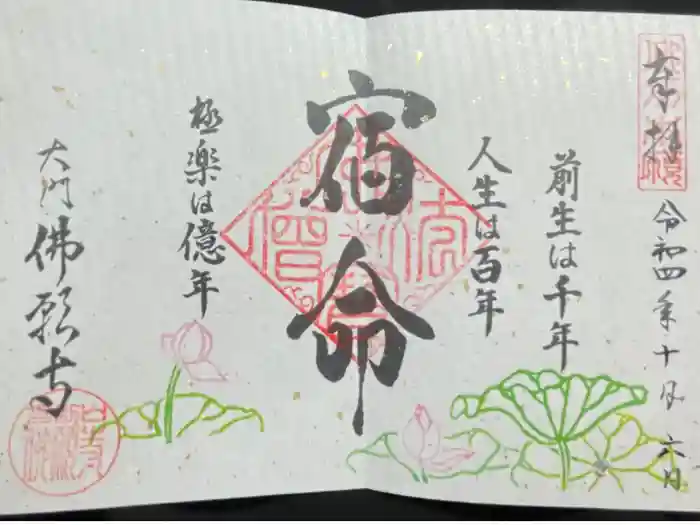 奉拝
令和四年十月六日
前生は千年
人生は百年
宿命
極楽は億年
大門
佛願寺